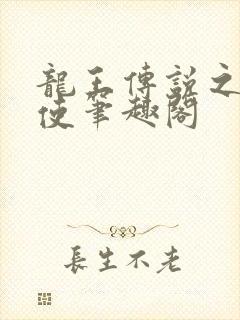 龍王傳說之
使筆趣閣
長生不老